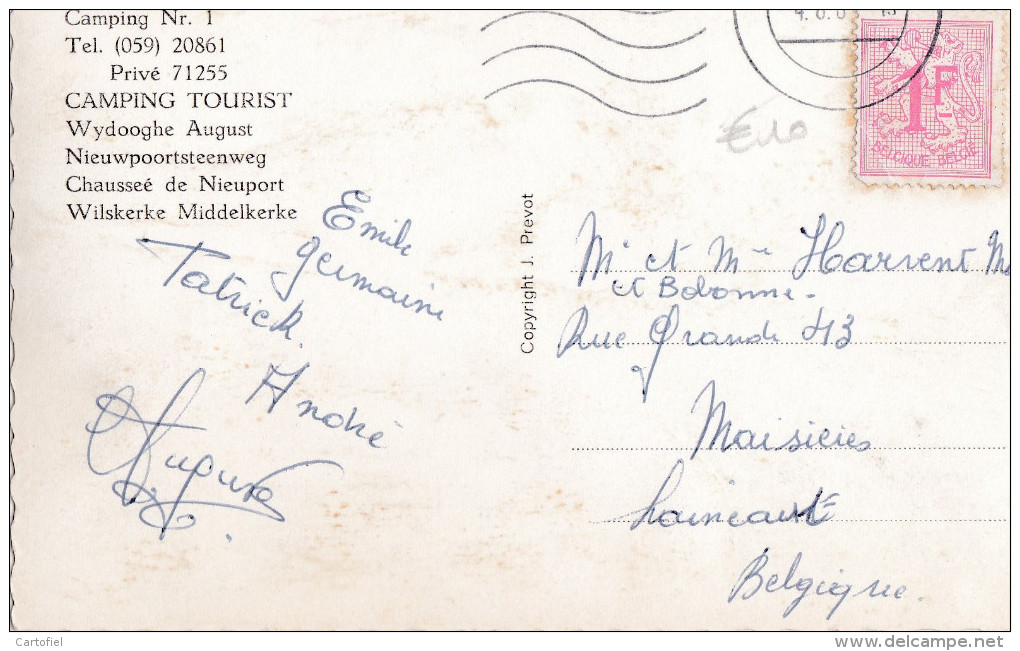 Camping Nr. 1
Tel. (059) 20861
Privé 71255
CAMPING TOURIST
Wydooghe August
Nieuwpoortsteenweg
Chausseé de Nieuport
Wilskerke Middelkerke
Emile
germaine
Patrick.
André
Copyright J. Prevot
1F
BELGIQUE-BELGIË
€10
Mr et Mme Harvent
et Bobonne-
Rue Grande 43
Maisières
Haineaut
Belgique.
Cartofiel
www.delcampe.net